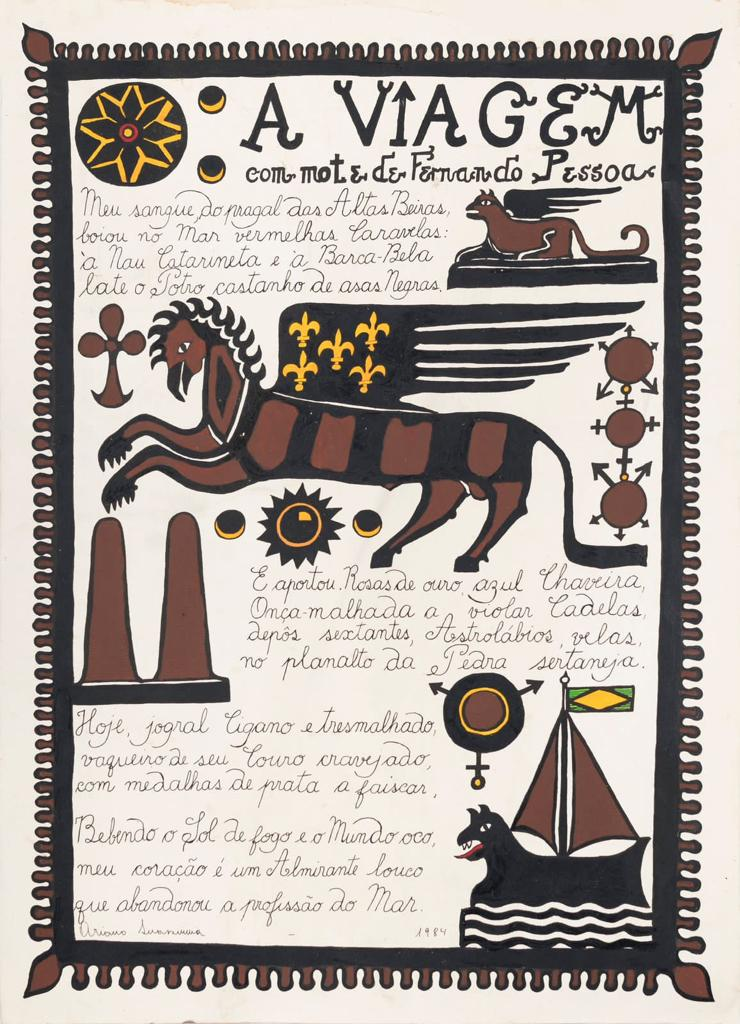 A VIAGEM
com mote de Fernando Pessoa
Meu sangue, do pragal das Altas Beiras,
boiou no Mar vermelhas Caravelas:
à Nau Catarineta e à Barca-Bela
late o Potro castanho de asas Negras.
E aportou. Rosas de ouro, azul Chaveira,
Onça-malhada a violar Cadelas,
depôs sextantes, Astrolábios, velas,
no planalto da Pedra sertaneja.
Hoje, jogral Cigano e tresmalhado,
vaqueiro de seu Couro cravejado,
com medalhas de prata a faiscar,
Bebendo o Sol de fogo e o Mundo oco,
meu coração é um Almirante louco
que abandonou a profissão do Mar.
Ariano Suassuna - 1984